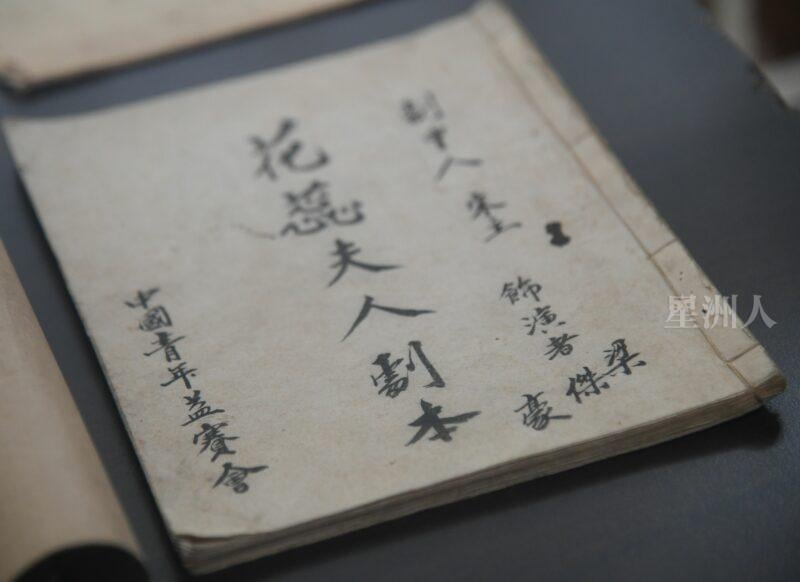 劇中人
飾演者 梁傑豪
花蕊夫人劇本
中國青年益賽會
星洲人